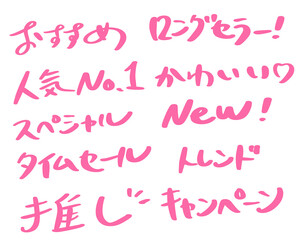 おすすめ
ロングセラー!
人気No.1
かわいい♡
スペシャル
New!
タイムセール
トレンド
推し
キャンペーン